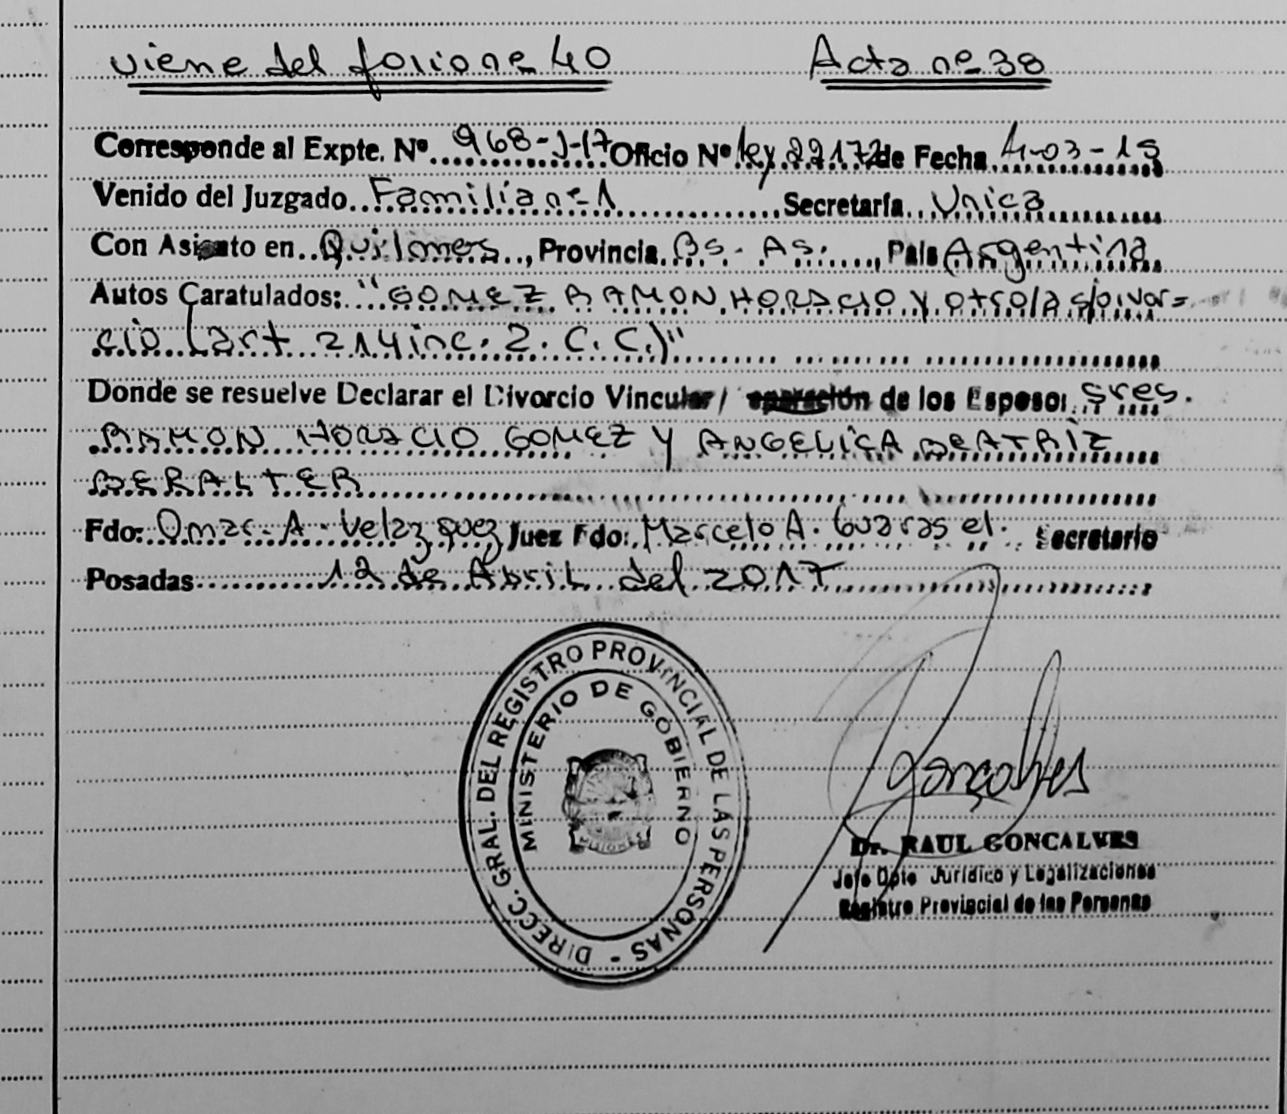 viene del folio nº 40 Acta nº 38
Corresponde al Expte. Nº 968-J-17 Oficio Nº ley 22172 de Fecha 4-03-15
Venido del Juzgado Familia nº 1 Secretaría Unica
Con Asiento en Quilmes, Provincia Bs. As., País Argentina
Autos Caratulados: "GOMEZ RAMON HORACIO Y otro/a s/Divor=
cio (art. 214 inc. 2. C. C.)"
Donde se resuelve Declarar el Divorcio Vincular / de los Esposos Sres.
RAMON HORACIO GOMEZ Y ANGELICA BEATRIZ
BERALTER
Fdo: Omar A. Velazquez Juez Fdo: Marcelo A. Secretario
Posadas 12 de Abril del 2017
DIRECC. GRAL. DEL REGISTRO PROVINCIAL DE LAS PERSONAS -
MINISTERIO DE GOBIERNO
MISIONES
Gonçalves
Dr. RAUL GONCALVES
Jefe Dpto Jurídico y Legalizaciones
Registro Provincial de las Personas